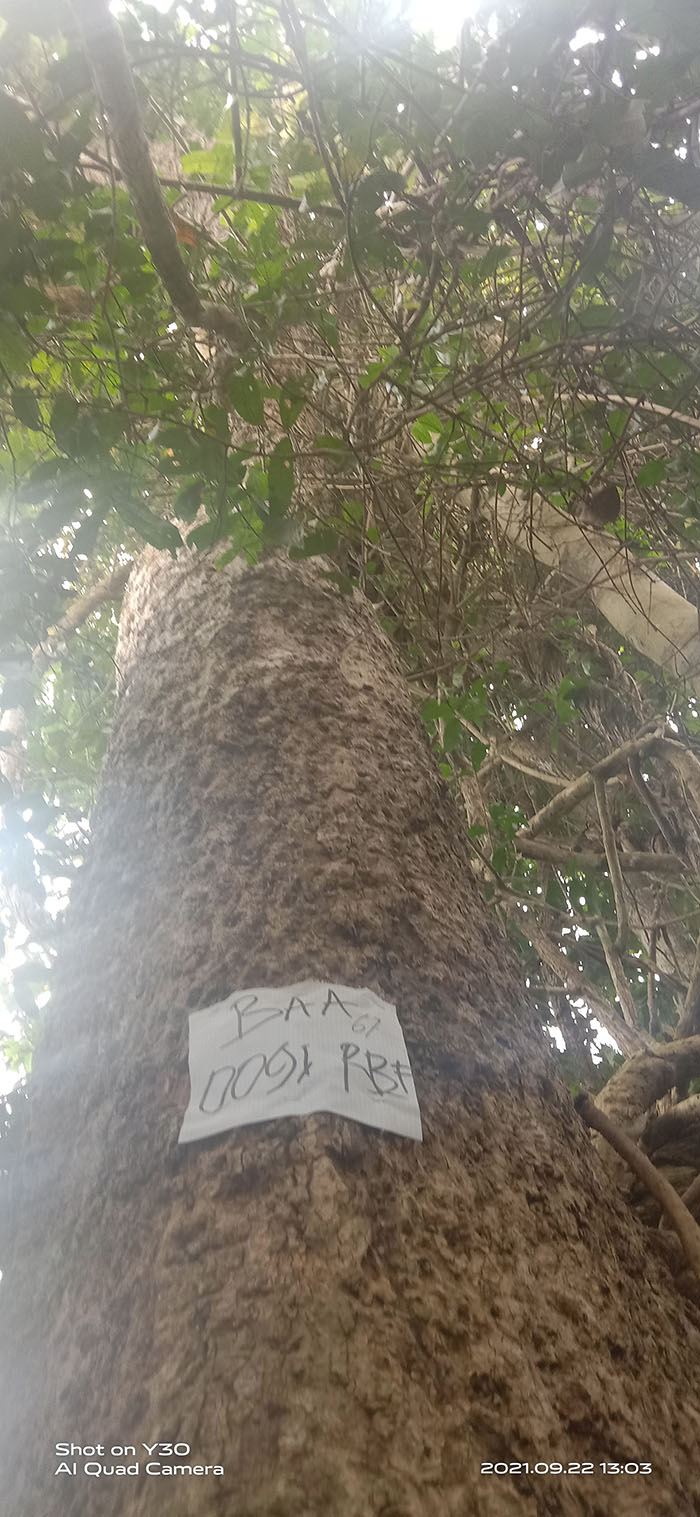 BAA
67
0091 RBF
Shot on Y30
AI Quad Camera
2021.09.22 13:03